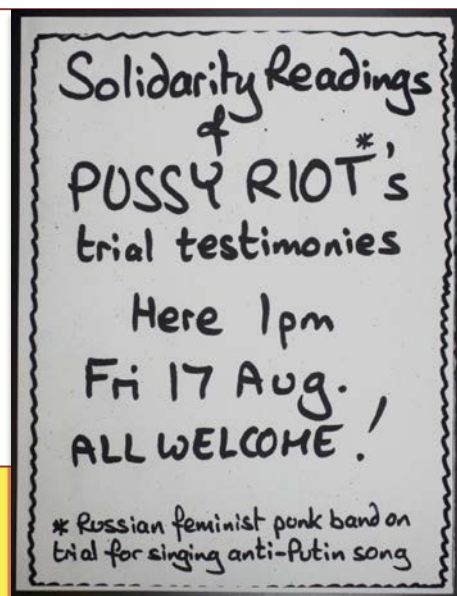 Solidarity Readings
of
PUSSY RIOT*'s
trial testimonies
Here 1pm
Fri 17 Aug.
ALL WELCOME!
* Russian feminist punk band on
trial for singing anti-Putin song